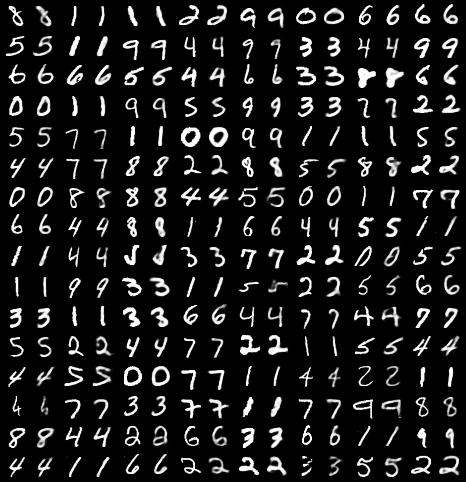 8 8 1 1 1 1 2 2 9 9 0 0 6 6 6 6
5 5 1 1 9 9 4 4 9 9 3 3 4 4 9 9
6 6 6 6 5 5 4 4 6 6 3 3 8 8 6 6
0 0 1 1 9 9 5 5 9 9 3 3 7 7 2 2
5 5 7 7 1 1 0 0 9 9 1 1 1 1 5 5
4 4 7 7 8 8 2 2 8 8 5 5 8 8 2 2
0 0 8 8 8 8 4 4 5 5 0 0 1 1 7 7
6 6 4 4 8 8 1 1 6 6 4 4 5 5 1 1
1 1 4 4 3 3 7 7 2 2 0 0 5 5
1 1 9 9 3 3 1 1 5 5 2 2 5 5 6 6
3 3 1 1 3 3 6 6 4 4 7 7 4 4 7 7
5 5 2 2 4 4 7 7 2 2 1 1 5 5 4 4
4 4 5 5 0 0 7 7 1 1 4 4 2 2 1 1
7 7 3 3 7 7 1 1 7 7 9 9 8 8
8 8 4 4 2 2 6 6 3 3 6 6 1 1 9 9
4 4 1 1 6 6 2 2 2 2 3 3 5 5 2 2